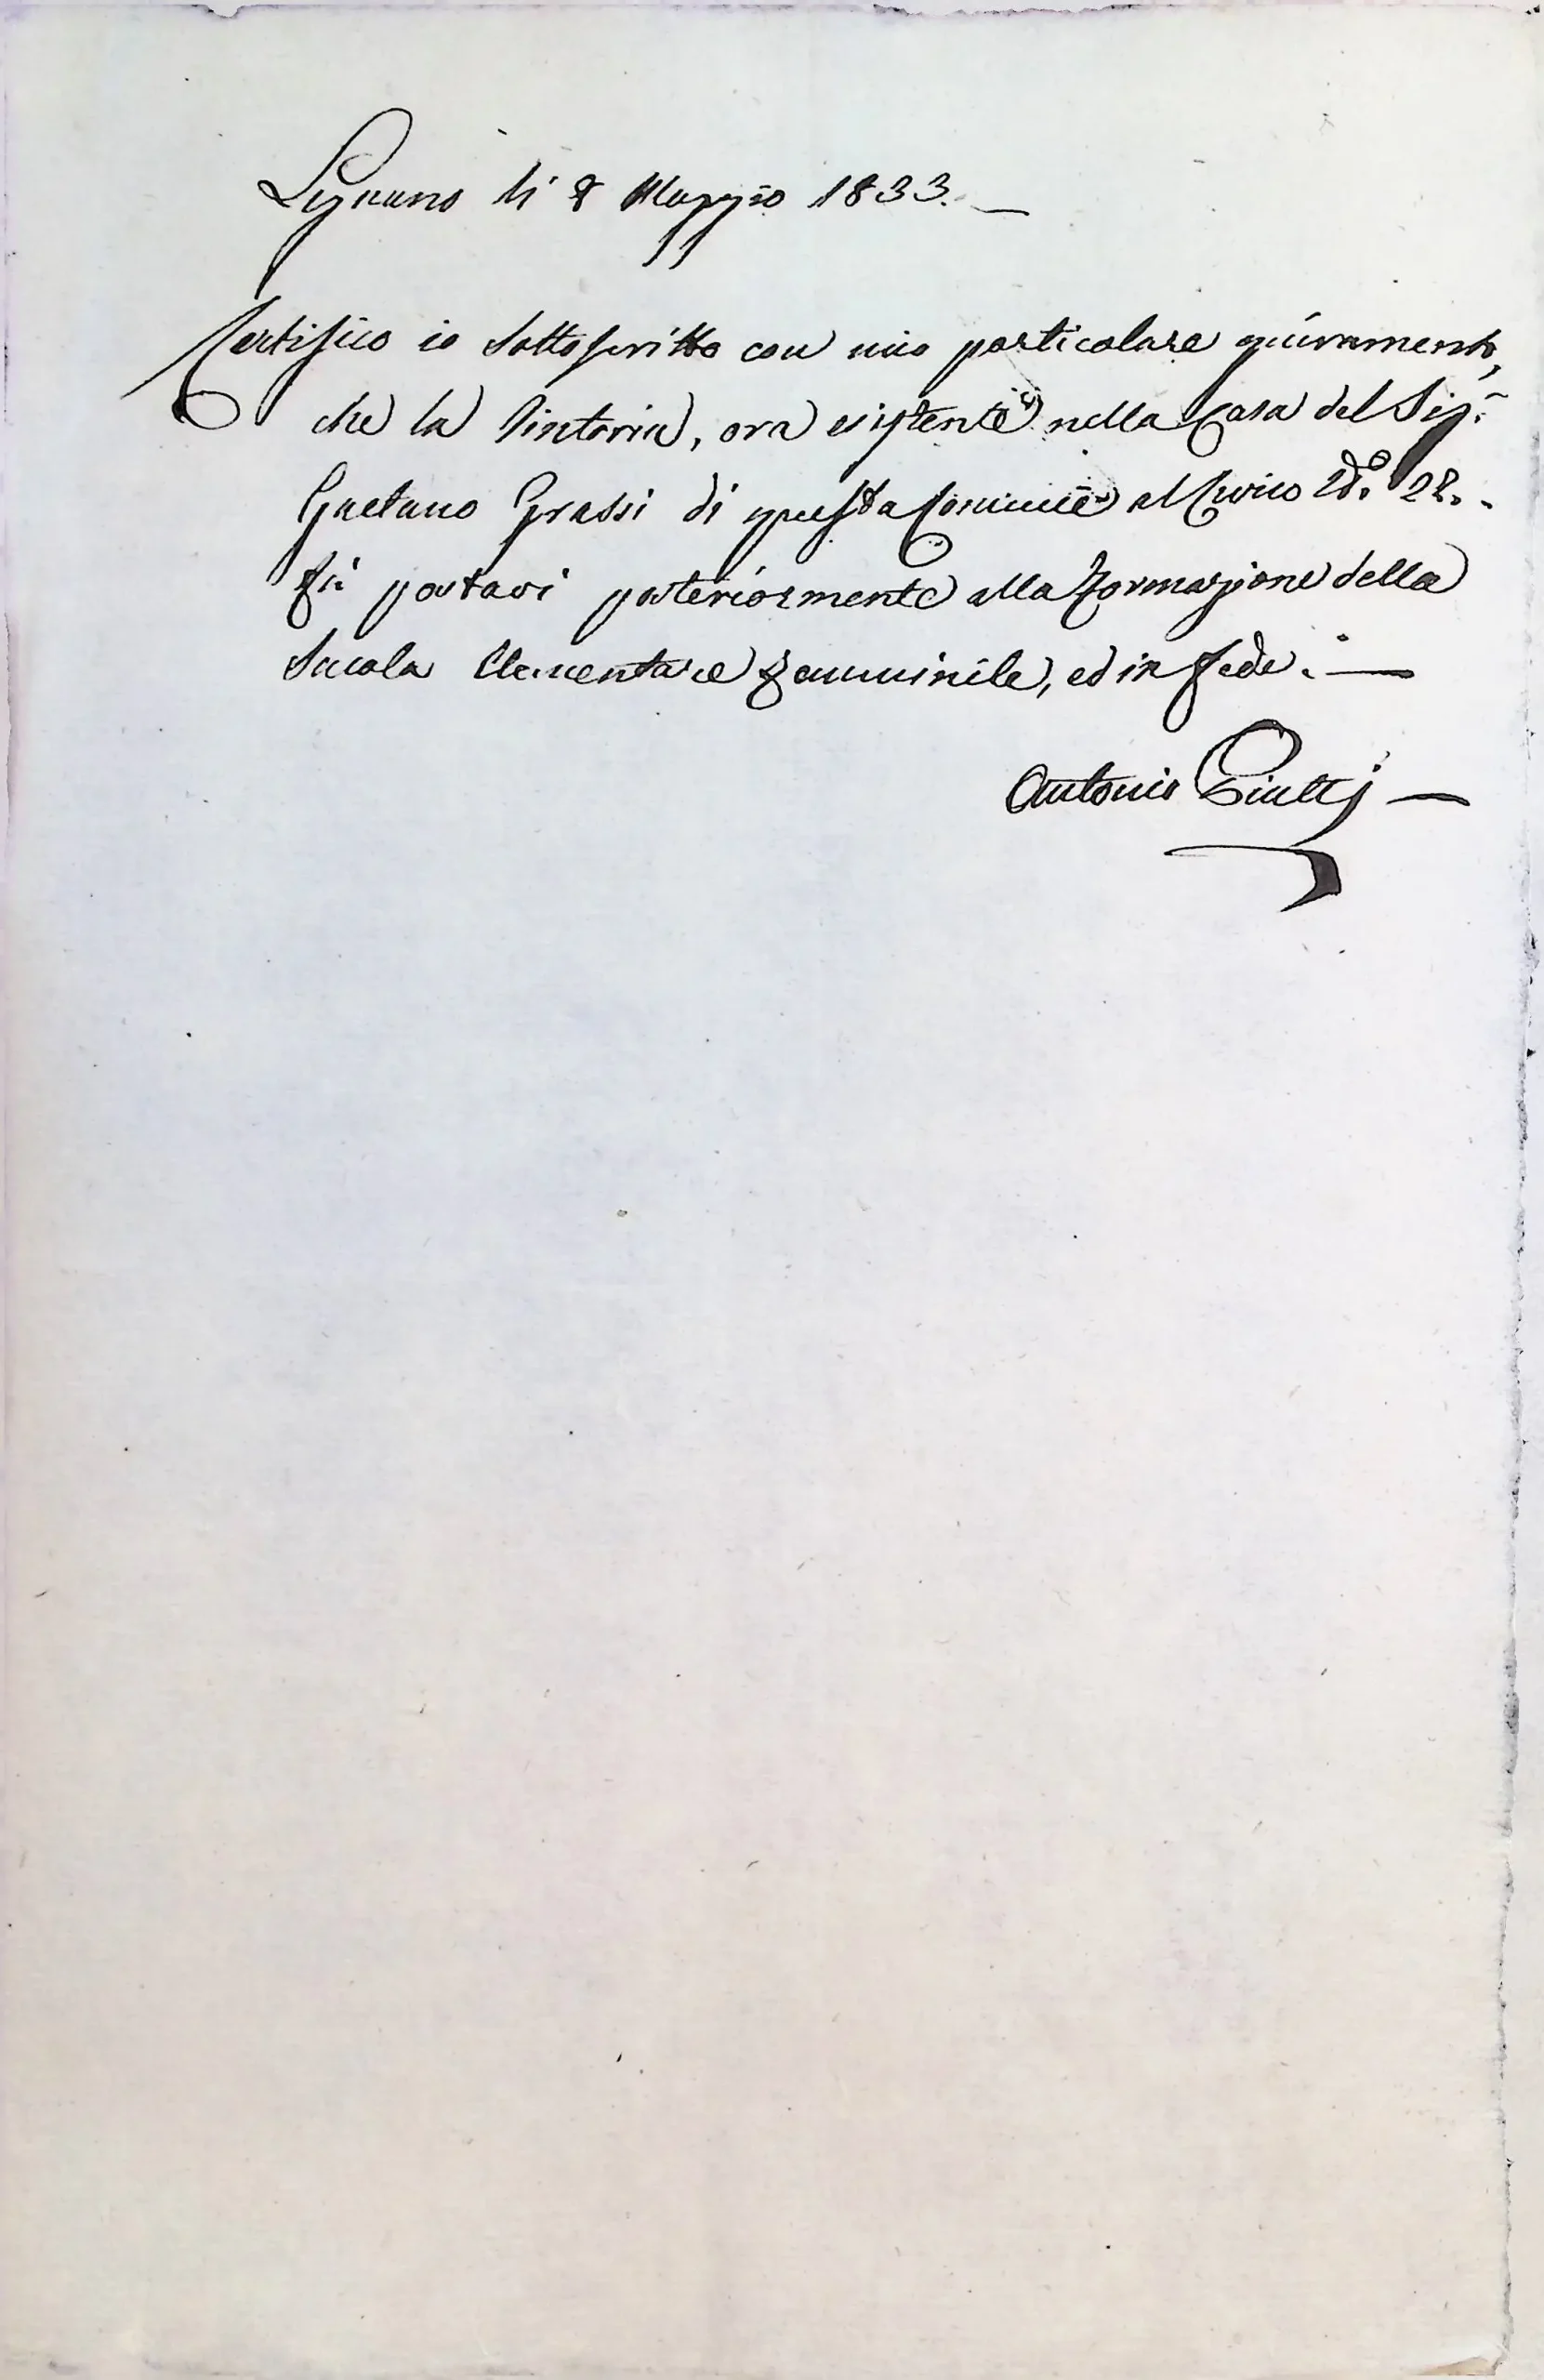 Legnano li 8 Maggio 1833. —
Certifico io sottoscritto con mio particolare giuramento,
che la Tintoria, ora esistente nella Casa del Sig.r
Gaetano Grassi di questa Comune al Civico N.o 22.
fù portavi posteriormente alla Formazione della
Scuola Elementare Femminile, ed in fede. —
Antonio —